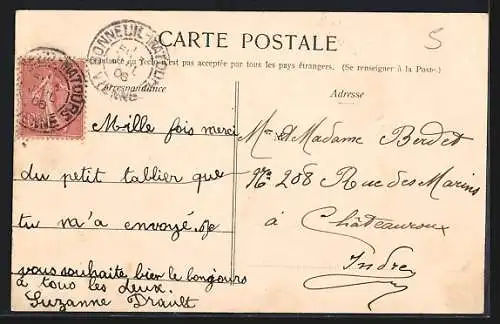 CARTE POSTALE
5
La Correspondance au recto n'est pas acceptée par tous les pays étrangers. (Se renseigner à la Poste.)
Correspondance
Adresse
BONNEUIL-MATOURS
VIENNE
08
Mille fois merci
du petit tablier que
tu m'a envoyé. Je
vous souhaite bien le bonjours
a tous les deux.
Suzanne Drault
Mr et Madame Berdet
No 208 Rue des Marins
à
Châteauroux
Indre